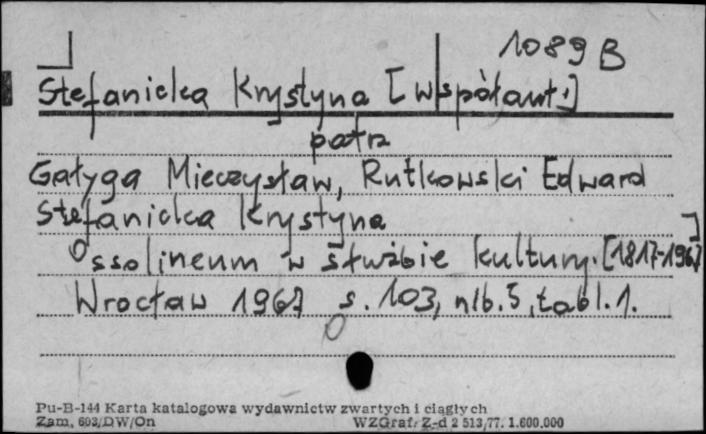 1089 B
Stefanicka Krystyna [współaut.]
patrz
Gałyga Mieczysław, Rutkowski Edward
Stefanicka Krystyna
Ossolineum w służbie kultury. [1817-1967]
Wrocław 1967 s. 103, nlb. 5, tabl. 1.
Pu-B-144 Karta katalogowa wydawnictw zwartych i ciągłych
Zam. 693/DW/On WZGraf. Z-d 2 513/77. 1.600.000